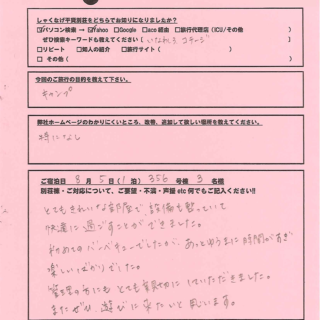 しゃくなげ平貸別荘をどちらでお知りになりましたか？
☑パソコン検索 → ☑Yahoo □Google □aco経由 □旅行代理店（ICU/その他 ）
ぜひ検索キーワードも教えてください（いなわしろ コテージ ）
□リピート □知人の紹介 □旅行サイト（ ）
□ その他（ ）
今回のご旅行の目的を教えて下さい。
キャンプ
弊社ホームページのわかりにくいところ、改善、追加して欲しい箇所を教えてください。
特になし
ご宿泊日 8月5日（1泊）356号棟 3名様
別荘様・ご対応について、ご要望・不満・声援 etc 何でもご記入ください!!
とてもきれいな部屋で、設備も整っていて
快適に過ごすことができました。
初めてのバーベキューでしたが、あっとゆうまに時間がすぎ
楽しいばかりでした。
管理の方にもとても親切にしていただきました。
またぜひ遊びに来たいと思います。